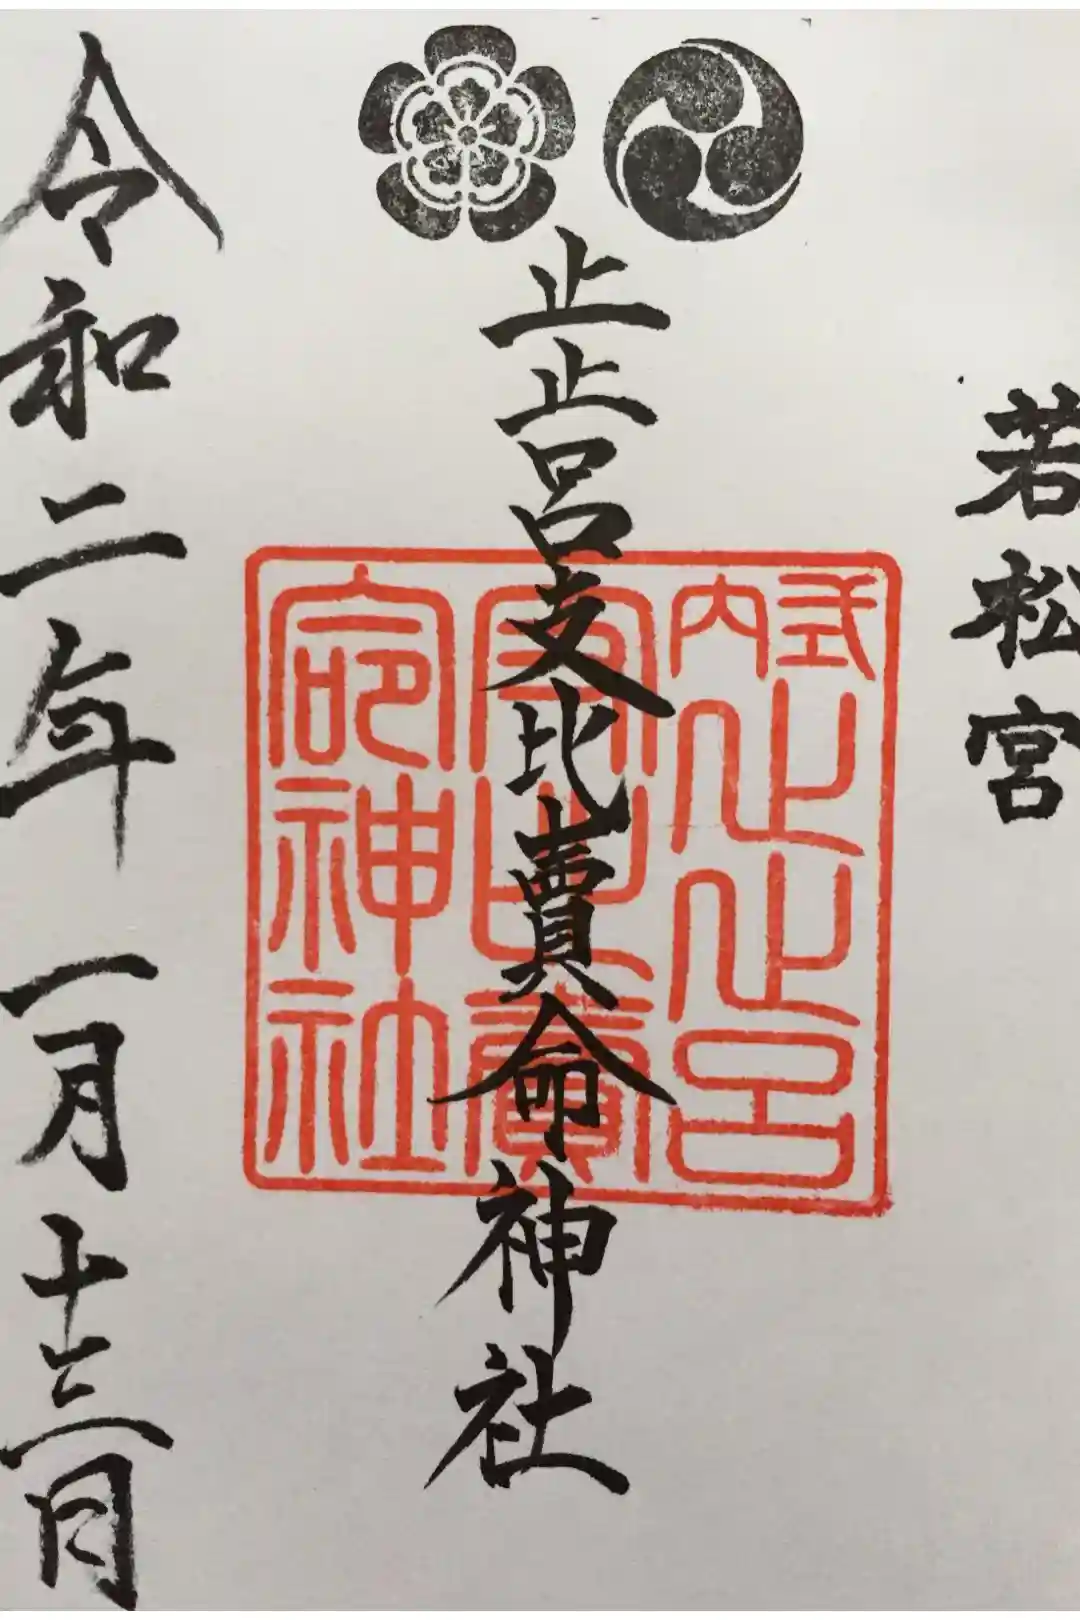 若松宮
止止呂支比賣命神社
式内止止呂
神社
令和二年一月十三日